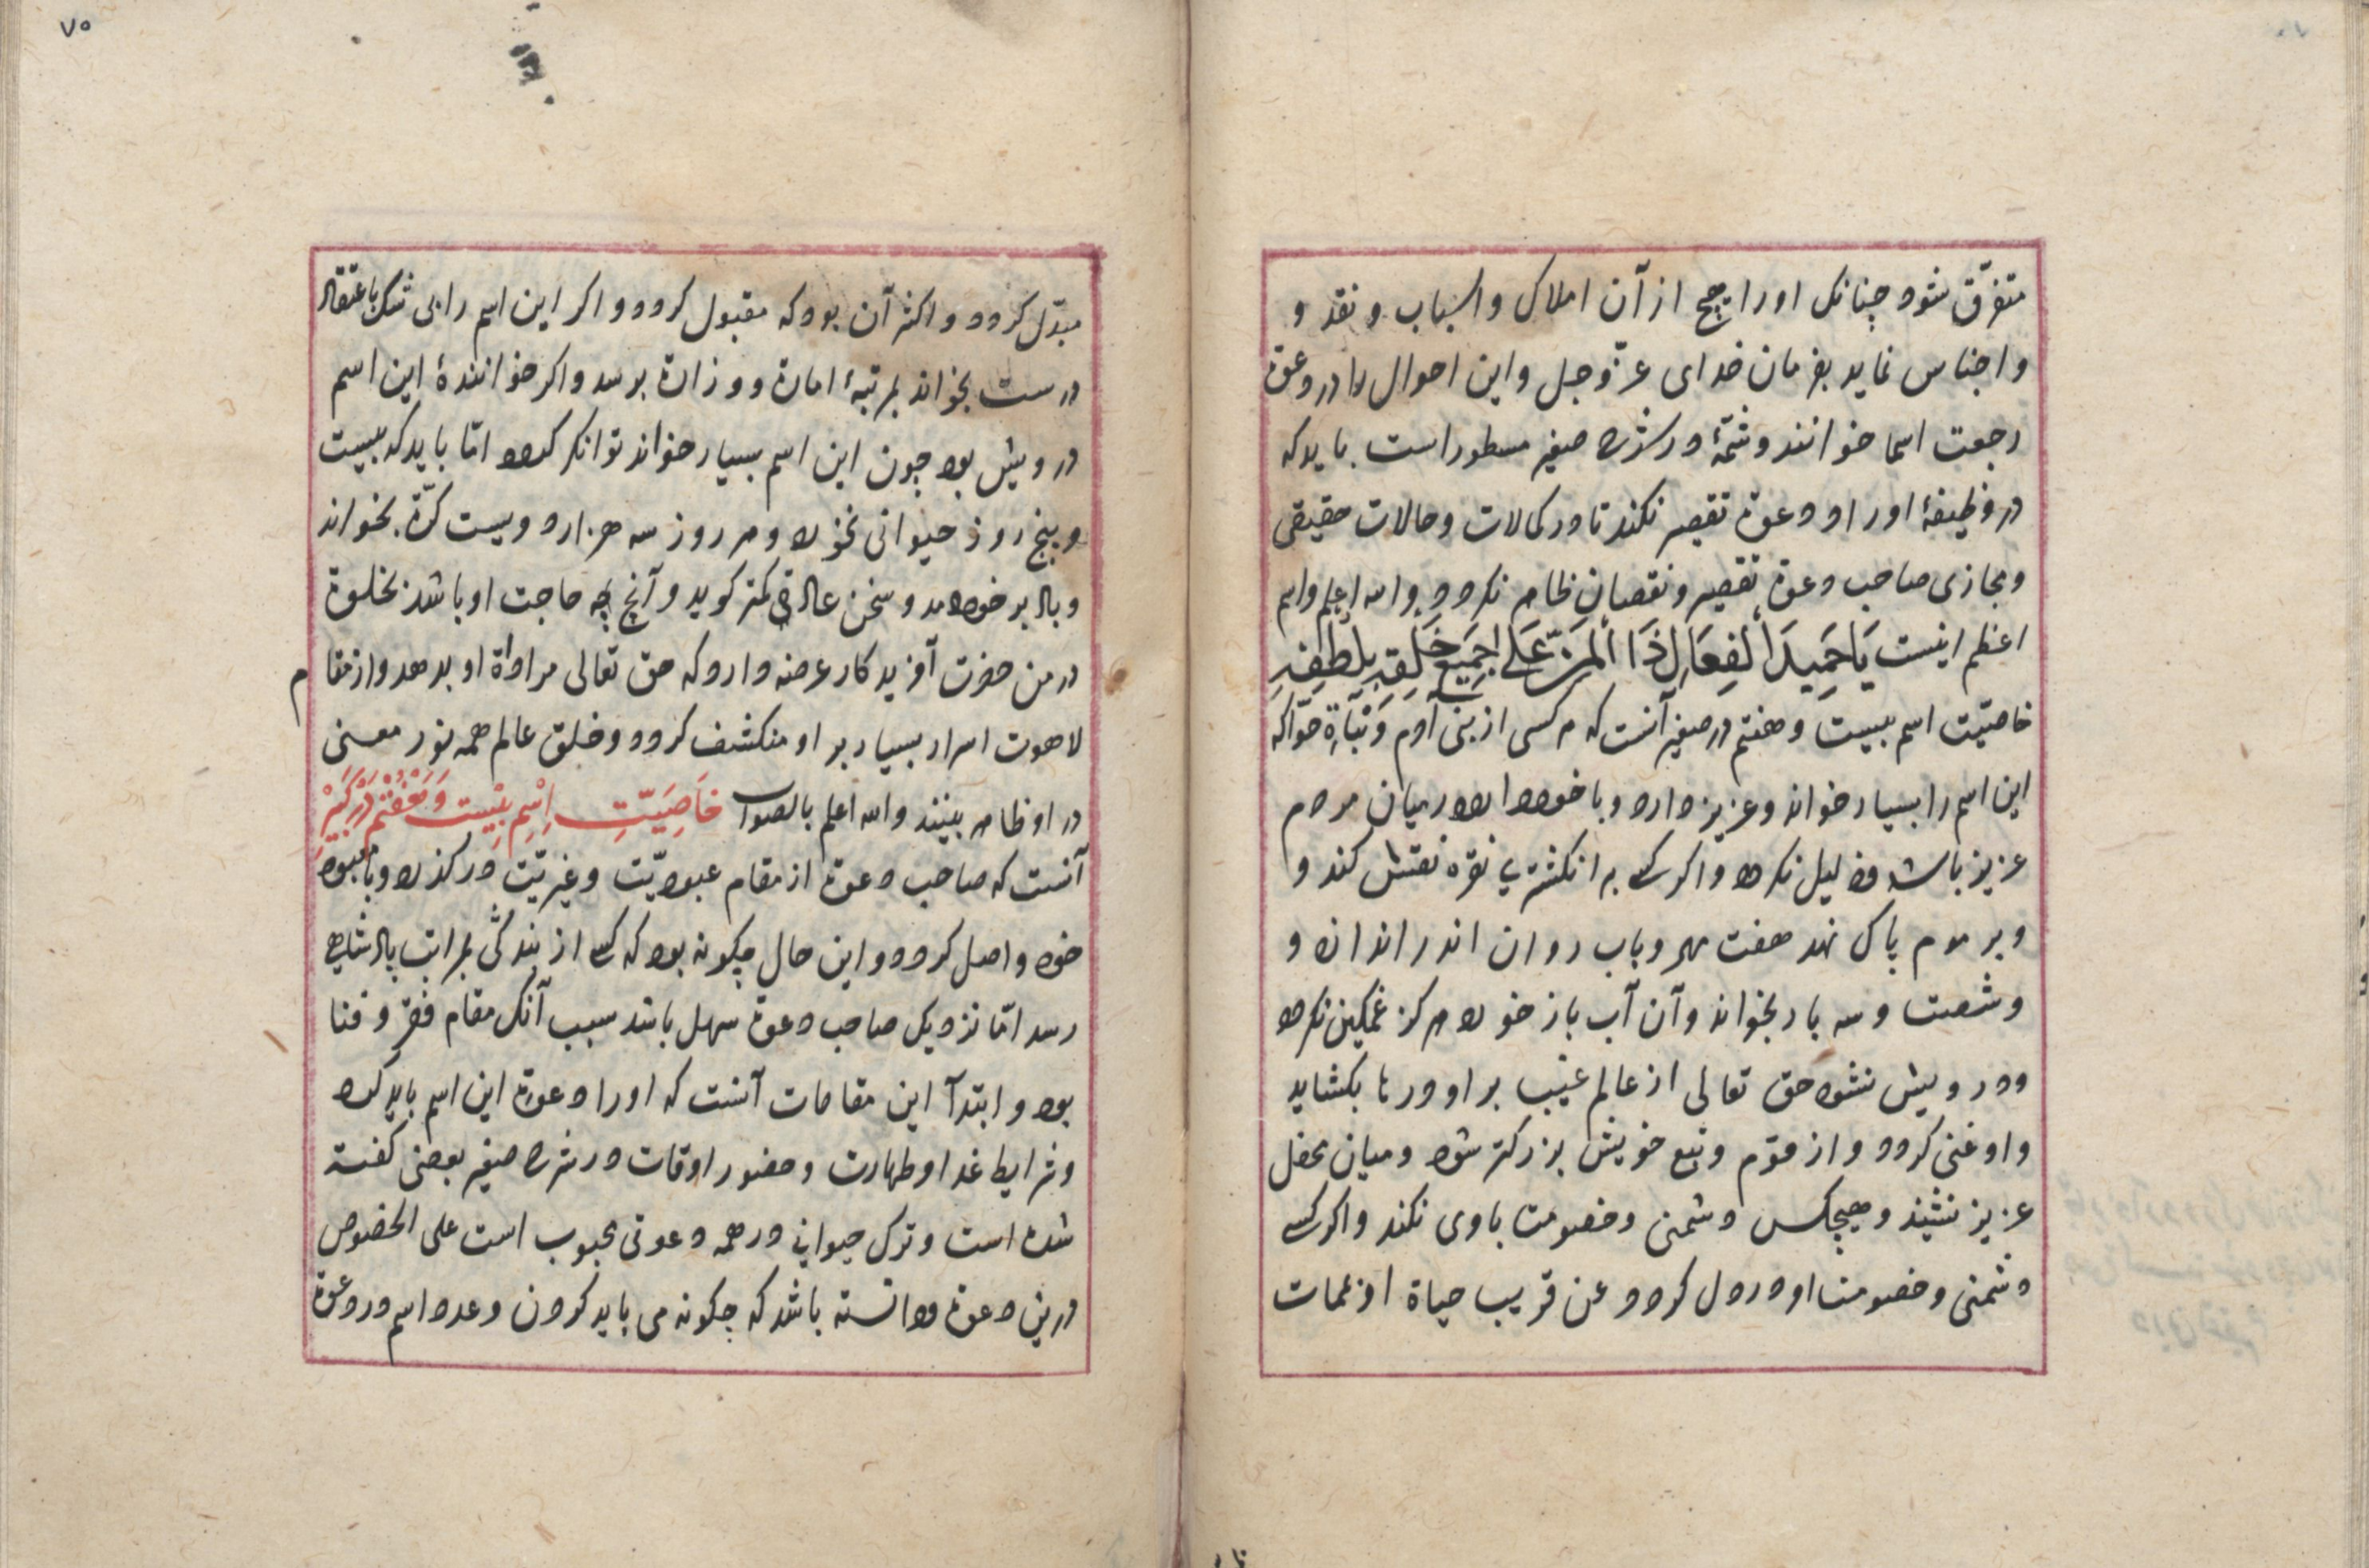 متفرّق شود چنانک اورا هیچ از آن املاک واسباب و نقد و
واجناس نماید بفرمان خدای عزّ وجل واین احوال را در دعوة
رجعت اسما خوانند وشمّهٔ در شرح صغیر مسطور است باید که
در وظیفهٔ اوراد ودعوة تقصیر نکند تا در کمالات وحالات حقیقی
ومجازی صاحب دعوة تقصیر ونقصان ظاهر نکردد والله اعلم واسم
اعظم اینست یَا حَمِیدَ الْفِعَالِ ذَا الْمَنِّ عَلَی جَمِیعِ خَلْقِهِ بِلُطْفِهِ
خاصیّت اسم بیست وهفتم در صغیر آنست که هر کسی از بنی آدم وَ حوّا که
این اسم را بسیار خواند وعزیز دارد وبا خود دارد در میان مردم
عزیز باشد وذلیل نکردد واکر کسی بر انکشتری نقره نقش کند و
وبر موم پاک نهد هفت مهر وباب روان اندر اندازد و
وشصت وسه بار بخواند وآن آب باز خورد هرکز غمکین نکردد
ودرویش نشود حق تعالی از عالم غیب بر او درها بکشاید
واو غنی کردد واز قوم وتبع خویش بزرکتر شود ومیان محفل
عزیز نشیند وهیچکس دشمنی وخصومت باوی نکند واکر کسی
دشمنی وخصومت او در دل کردد عن قریب حیاة او بممات
٧٥
مبدّل کردد واکثر آن بود که مقبول کردد واکر این اسم را بی شک باعتقاد
درست بخواند بمرتبهٔ امارة ووزارة برسد واکر خوانندهٔ این اسم
درویش بود چون این اسم بسیار خواند توانکر کردد امّا باید که بیست
وپنج روز حیوانی نخورد وهر روز سه هزار ودویست کرّة بخواند
وباد بر خود دمد وسخن عادتی کمتر کوید وآنچ چه حاجت او باشد بخلوة
در من حضرت آفریدکار عرضه دارد که حق تعالی مراد او بدهد واز مقام
لاهوت اسرار بسیار بر او منکشف کردد وخلق عالم همه نور معنی
در او ظاهر بینند والله اعلم بالصواب خَاصِیَّتِ اِسْمِ بِیسْت وَهَفْتُم دَرْ کَبِیرْ
آنست که صاحب دعوة از مقام عبودیّت وغیریّت درکذرد وبا معبود
خود واصل کردد واین حال چکونه بود که کسی از بندکی بمراتب پادشاهی
رسد امّا نزدیک صاحب دعوة سهل باشد سبب آنک مقام فقر وفنا
بود وابتدآ این مقامات آنست که اورا دعوة این اسم باید کرد
وشرایط غدا وطهارت وحضور اوقات در شرح صغیر بعضی کفته
شده است وترک حیوانی در همه دعوتی محبوب است علی الخصوص
درین دعوة دانسته باشد که چکونه می باید کردن وعدد اسم در دعوة